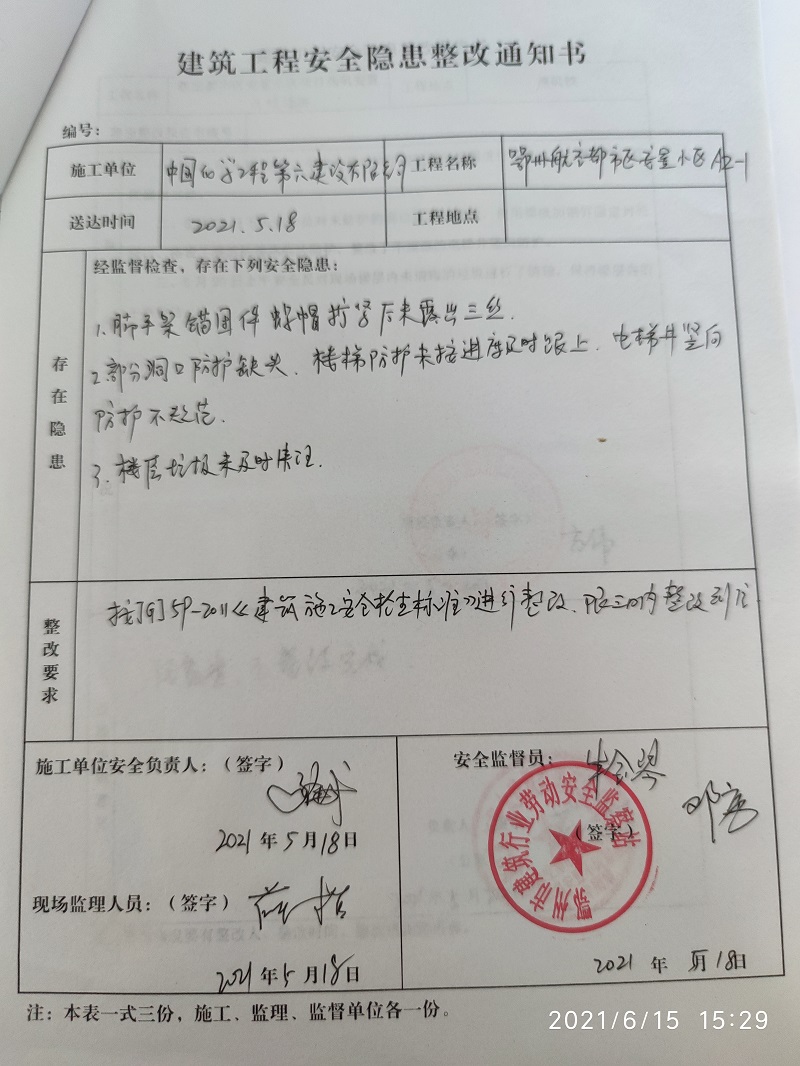 建筑工程安全隐患整改通知书
编号：
施工单位 中国化学工程第六建设有限公司 工程名称 鄂州航空都市区安置小区A2-1
送达时间 2021.5.18 工程地点
存在隐患
经监督检查，存在下列安全隐患：
1.脚手架锚固件螺帽拧紧后未露出三丝.
2.部分洞口防护缺失、楼梯防护未按进度及时跟上、电梯井竖向
防护不规范.
3.楼层垃圾未及时清理.
整改要求
按JGJ59-2011《建筑施工安全检查标准》进行整改、限三日内整改到位.
施工单位安全负责人：（签字）
2021年5月18日
安全监督员：
（签字）
鄂州市建筑行业劳动安全监察站
现场监理人员：（签字）
2021年5月18日
2021年5月18日
注：本表一式三份，施工、监理、监督单位各一份。
2021/6/15 15:29